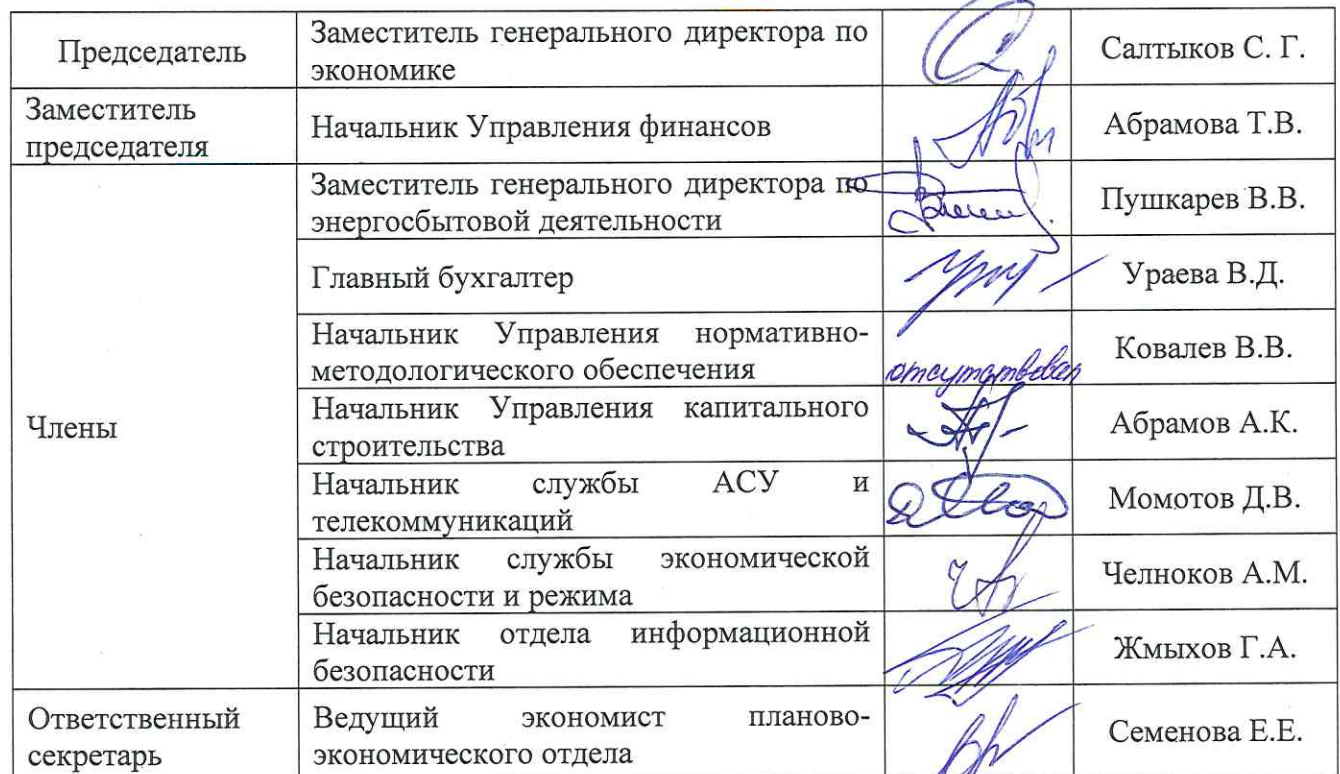 Председатель
Заместитель генерального директора по
экономике
Салтыков С. Г.
Заместитель
председателя
Начальник Управления финансов
Абрамова Т.В.
Члены
Заместитель генерального директора по
энергосбытовой деятельности
Пушкарев В.В.
Главный бухгалтер
Ураева В.Д.
Начальник Управления нормативно-
методологического обеспечения
отсутствовал
Ковалев В.В.
Начальник Управления капитального
строительства
Абрамов А.К.
Начальник службы АСУ и
телекоммуникаций
Момотов Д.В.
Начальник службы экономической
безопасности и режима
Челноков А.М.
Начальник отдела информационной
безопасности
Жмыхов Г.А.
Ответственный
секретарь
Ведущий экономист планово-
экономического отдела
Семенова Е.Е.